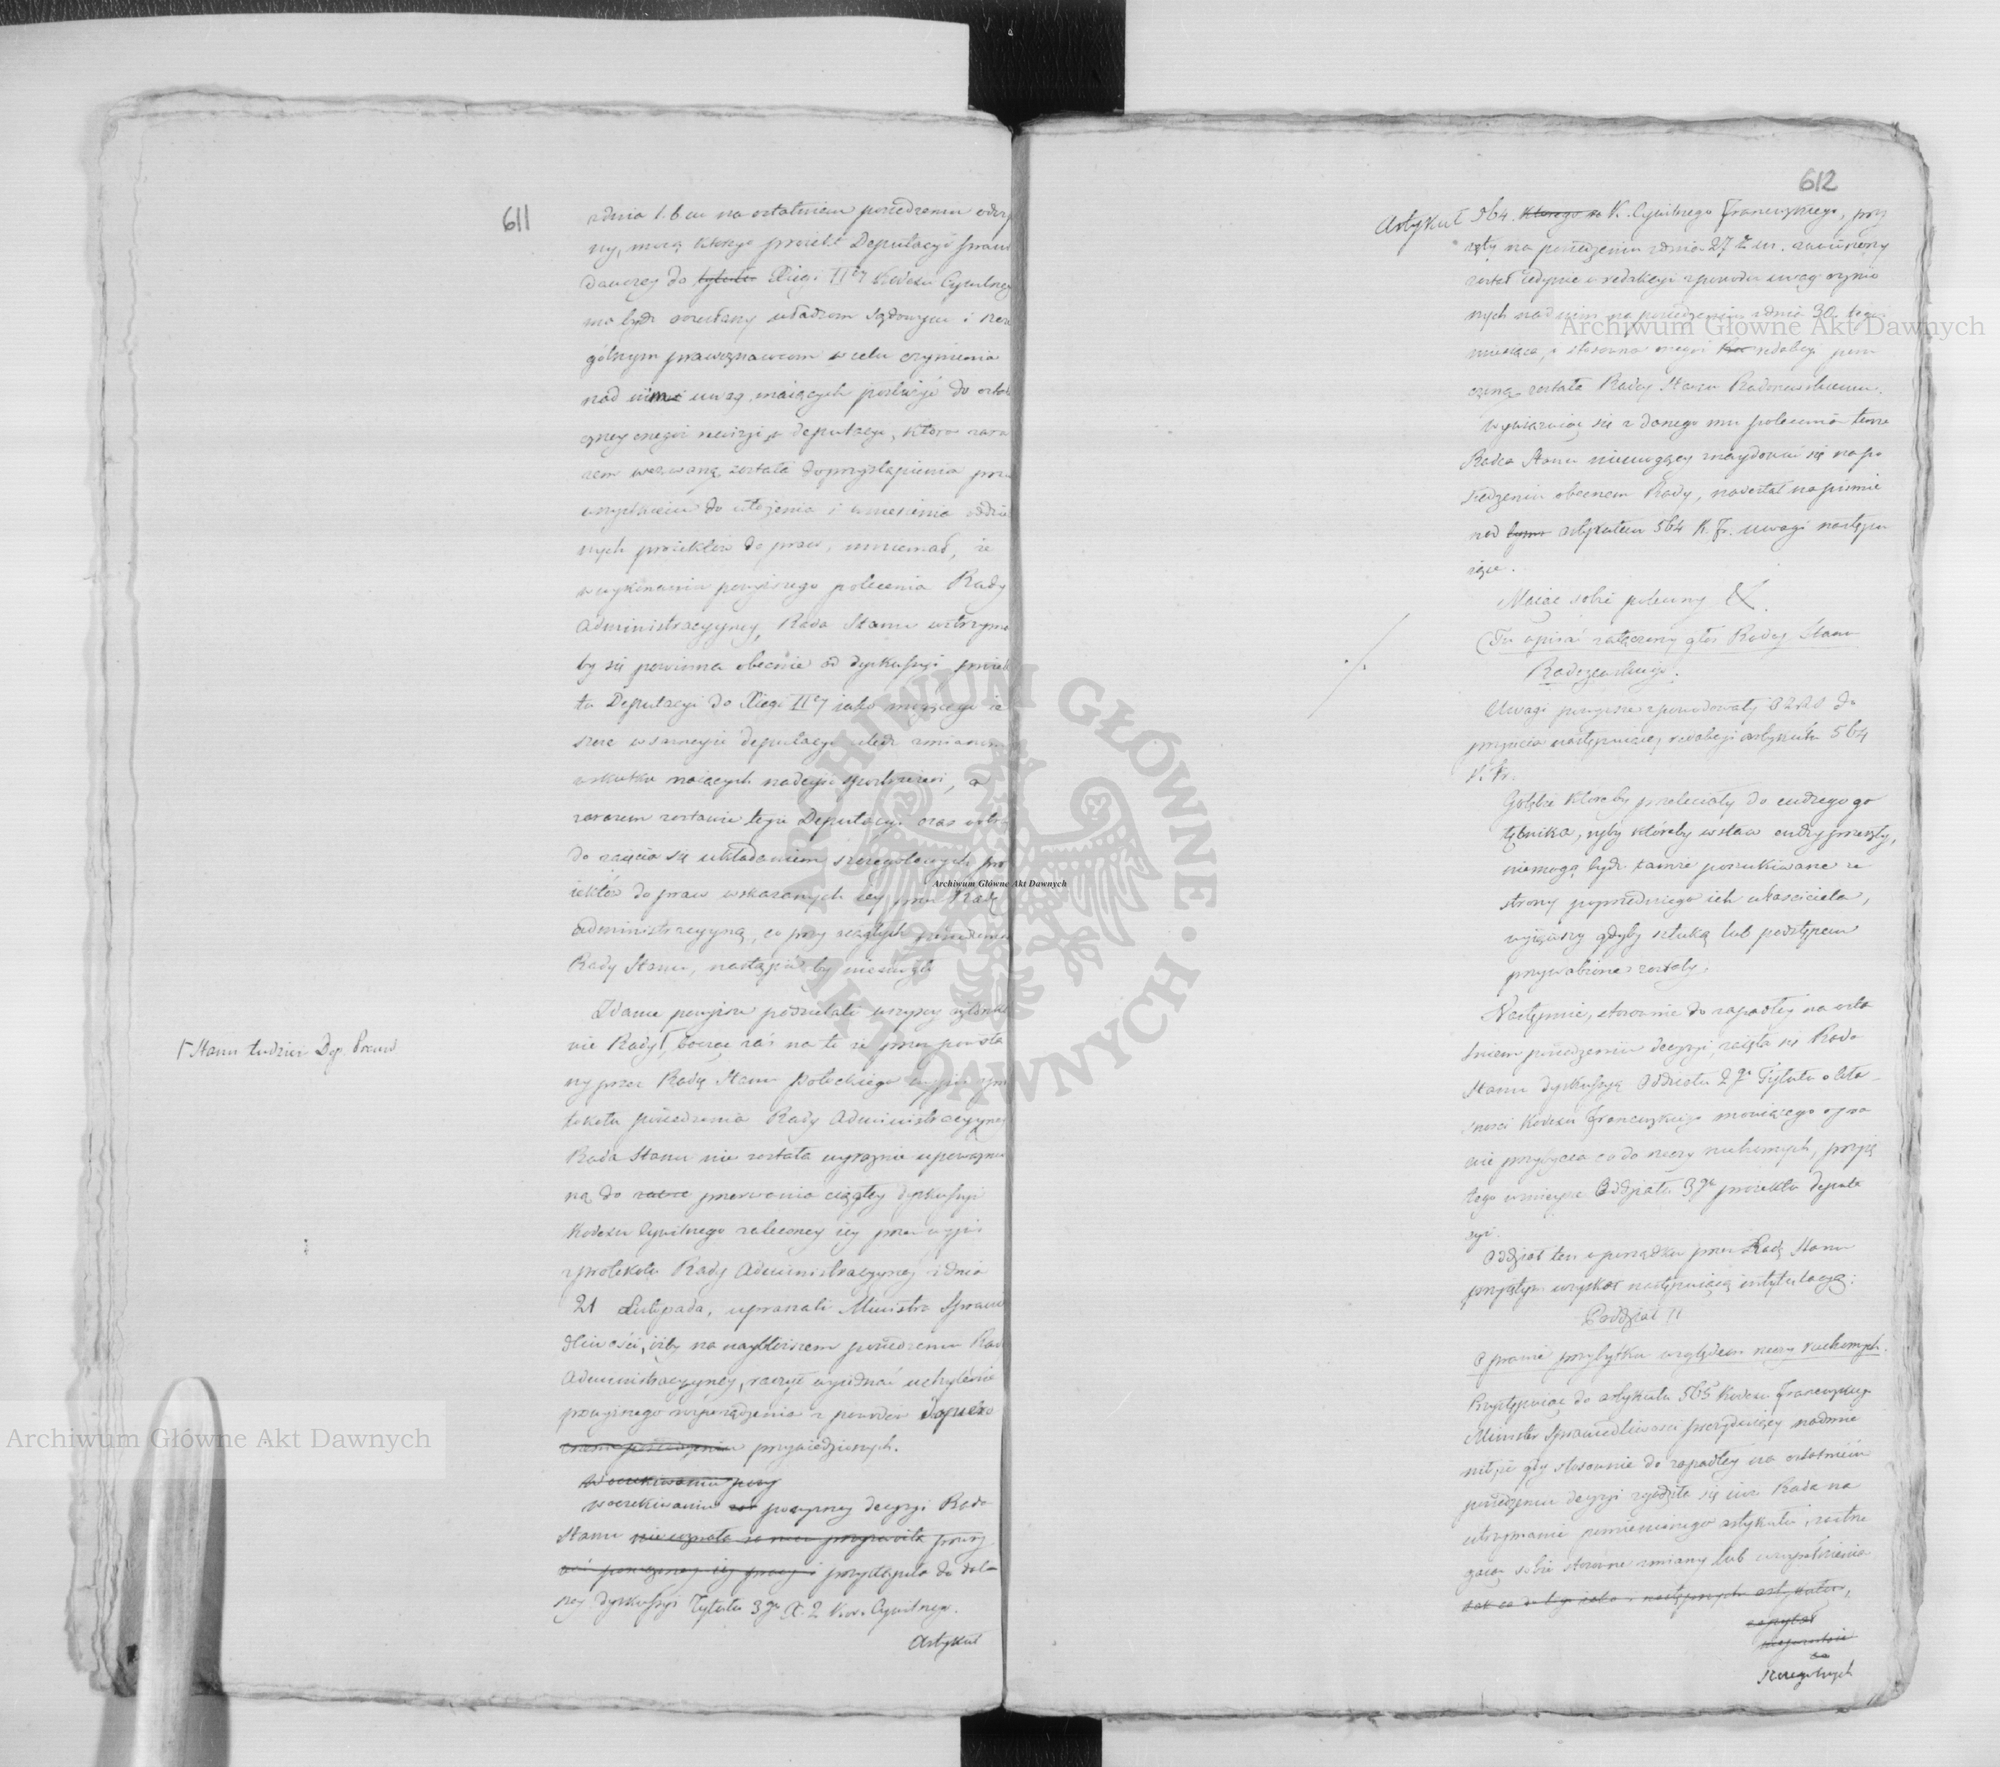 611
z dnia 1. b. m. na ostatniem posiedzeniu odczy
ny, mocą którego proiekt Deputacyi prawo
dawczey do tytułu Xięgi IIéy Kodexu Cywilneg
ma bydź rozesłany władzom sądowym i szcze
gólnym prawoznawcom w celu czynienia
nad nimi uwag, maiących posłużyć do ostat
czney onegoż rewizyi w deputacyi, która zara
zem wezwaną została do przystąpienia prze
wszystkiem do ułożenia i wniesienia oddziel
nych proiektów do praw, mniemał, iż
w wykonaniu powyższego polecenia Rady
Administracyyney, Rada Stanu wstrzyma
by się powinna obecnie od dyskussyi proiek
tu Deputacyi do Xięgi IIéy iako mogącego ie
szcze w samejże deputacyi uledz zmianom
w skutku maiących nadeyść spostrzeżeń, a
zarazem zostawić teyże Deputacyi czas
do zaięcia się układaniem szczególnych pro
iektów do praw wskazanych iey przez Radę
administracyyną, co przy ciągłych posiedzeniach
Rady Stanu, nastąpić by niemogło
Zdanie powyższe podzielali wszyscy członko
wie Rady Γ, bacząc zaś na to iż przez powoła
ny przez Radcę Stanu Potockiego wypis z pro
tokółu posiedzenia Rady Administracyyney
Rada Stanu nie została wyraźnie upoważnio
ną do przerwania ciągłey dyskussyi
Kodexu Cywilnego zaleconey iey przez wypis
z protokółu Rady Administracyyney z dnia
21 Listopada, upraszali Ministra Sprawie
dliwości, iżby na naybliższem posiedzeniu Rady
Administracyyney, raczył wyiednać uchylenie
powyższego rozporządzenia z powodów dopiero
przywiedzionych.
W oczekiwaniu powy
W oczekiwaniu powyższey decyzyi Rada
Stanu przystąpiła do dal
szey dyskussyi Tytułu 3go X. 2 Kod. Cywilnego.
Artykuł
Γ Stanu tudzież Dep. Prawod
612
Artykuł 564. którego K. Cywilnego Francuzkiego, przy
ięty na posiedzeniu z dnia 27 z. m. zawieszony
został iedynie w redakcyi z powodu uwag czynio
nych nad nim na posiedzeniu z dnia 30. tegoż
miesiąca, a stosowna onegoż redakcyi poru
czoną została Radcy Stanu Radoszewskiemu.
Wywiązuiąc się z danego mu polecenia tenże
Radca Stanu niemogący znaydować się na po
siedzeniu obecnem Rady, nadesłał na piśmie
nad tym artykułem 564 K. Fr. uwagi następu
iące.
Maiąc sobie polecony &.
(Tu wpisać załączony głos Radcy Stanu
Radoszewskiego.
Uwagi powyższe spowodowały Radę do
przyięcia następuiącey redakcyi artykułu 564
K. Fr.
Gołębie któreby przeleciały do cudzego go
łębnika, ryby któreby w staw cudzy przeszły,
niemogą bydź tamże poszukiwane ze
strony poprzedniego ich właściciela,
wyiąwszy gdyby sztuką lub podstępem
przywabione zostały.
Następnie, stosownie do zapadłey na osta
tniem posiedzeniu decyzyi, zaięła się Rada
Stanu dyskussyą Oddziału 2go Tytułu o Wła
sności Kodexu Francuzkiego mówiącego o pra
wie przybycia co do rzeczy ruchomych, przyię
tego w mieysce Oddziału 3go proiektu deputa
cyi.
Oddział ten w porządku przez Radę Stanu
przyiętym uzyskał następuiącą intytulacyą:
Poddział II
O prawie przybytku względem rzeczy ruchomych.
Przystępuiąc do artykułu 565 Kodexu Francuzkiego
Minister Sprawiedliwości prezyduiący nadmie
nił, iż gdy stosownie do zapadłey na ostatniem
posiedzeniu decyzyi zgodziła się iuż Rada na
utrzymanie pomienionego artykułu, zastrze
gaiąc sobie stosowne zmiany lub uzupełnienia
tak co do tego iako i następnych artykułów,
zapytał
szczególnych